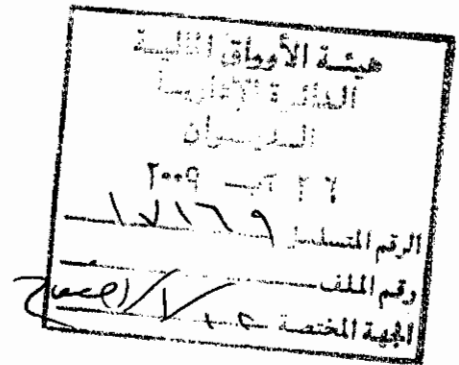 هيئة الأوراق المالية
الدائرة الإدارية
الديوان
٢٦ آب ٢٠٠٩
الرقم المتسلسل ١٧١٦٩
رقم الملف
الجهة المختصة